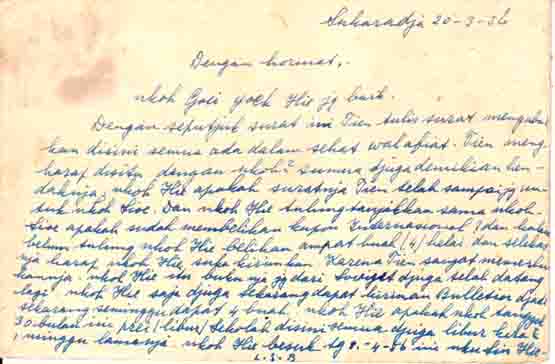 Sukaradja 20-3-56
Dengan hormat,-
nkoh Goei Yoek Hie jg baik.
Dengan seputjuk surat ini Tien tulis surat mengabar
kan disini semua ada dalam sehat walafiat. Tien meng
harap disitu dengan nkoh2 semua djuga demikian hen
daknja, nkoh Hie apakah suratnja Tien telah sampai jg un
tuk nkoh Sioe. Dan nkoh Hie tulung tanjakkan sama nkoh
Sioe apakah sudah membelikan kupon Internasional) dan kalau
belum tulung nkoh Hie belikan ampat buah (4) helai dan selekas
nja harap nkoh Hie supa kirimkan. Karena Tien sangat memerlu
kannja. nkoh Hie itu buku nja jg dari Soviget djuga telah datang
lagi, nkoh Hie saja djuga sekarang dapat kiriman Bulletion djadi
sekarang seminggu dapat 4 buah, nkoh Hie apakah nkoh
30 bulan ini prei (libur) sekolah disini semua djuga libur
minggu lamanja. nkoh Hie besuk tg 8-4-56 ini
L.S.B